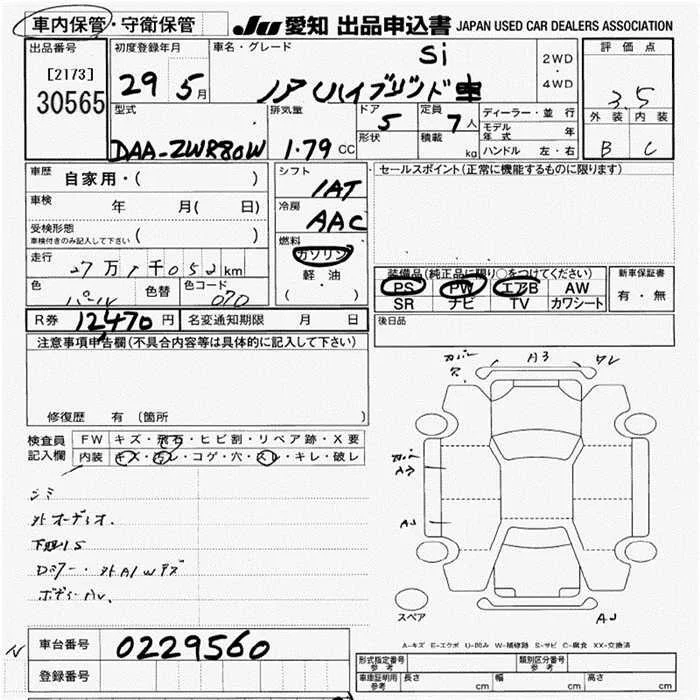 車内保管・守衛保管 JU 愛知 出品申込書 JAPAN USED CAR DEALERS ASSOCIATION
出品番号 初度登録年月 車名・グレード 評価点
[2173] 29 5月 Si 2WD・4WD
30565 ノア Uハイブリッド車 3.5
型式 排気量 ドア 定員 ディーラー・並行 外装 内装
DAA-ZWR80W 1.79 CC 5 7人 モデル年式 年 B C
形状 積載 kg ハンドル 左・右
車歴 自家用・( ) シフト セールスポイント(正常に機能するものに限ります)
1AT
車検 年 月( 日) 冷房
AAC
受検形態 ( )
車検付きのみ記入して下さい
燃料
走行 27万1千052km ガソリン 装備品(純正品に限り○をつけてください) 新車保証書
軽・油 PS PW エアB AW 有・無
色 パール 色替 色コード 070 ( ) SR ナビ TV カワシート
R券 12,470円 名変通知期限 月 日 後日品
注意事項申告欄(不具合内容等は具体的に記入して下さい)
カバー穴 A3 ワレ
修復歴 有 (箇所
検査員 FW キズ・飛石・ヒビ割・リペア跡・X要
記入欄 内装 キズ・汚レ・コゲ・穴・スレ・キレ・破レ
カバー
A3
シミ
外オーディオ.
下廻りS
Dミラー・外A/Wキズ
ボディーAU.
スペア
A-キズ E-エクボ U-凹み W-補修跡 S-サビ C-腐食 XX-交換済
N 車台番号 0229560
形式指定番号 参考 類別区分番号 参考
登録番号 車庫証明用 参考 長さ cm 幅 cm 高さ cm